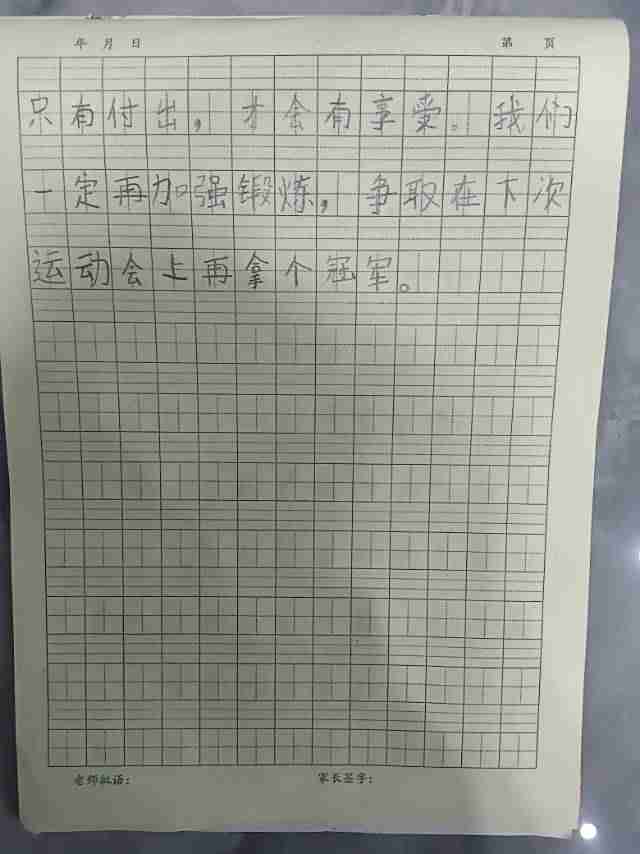 年 月 日 第 页
只有付出，才会有享受。我们
一定再加强锻炼，争取在下次
运动会上再拿个冠军。
老师批语： 家长签字：